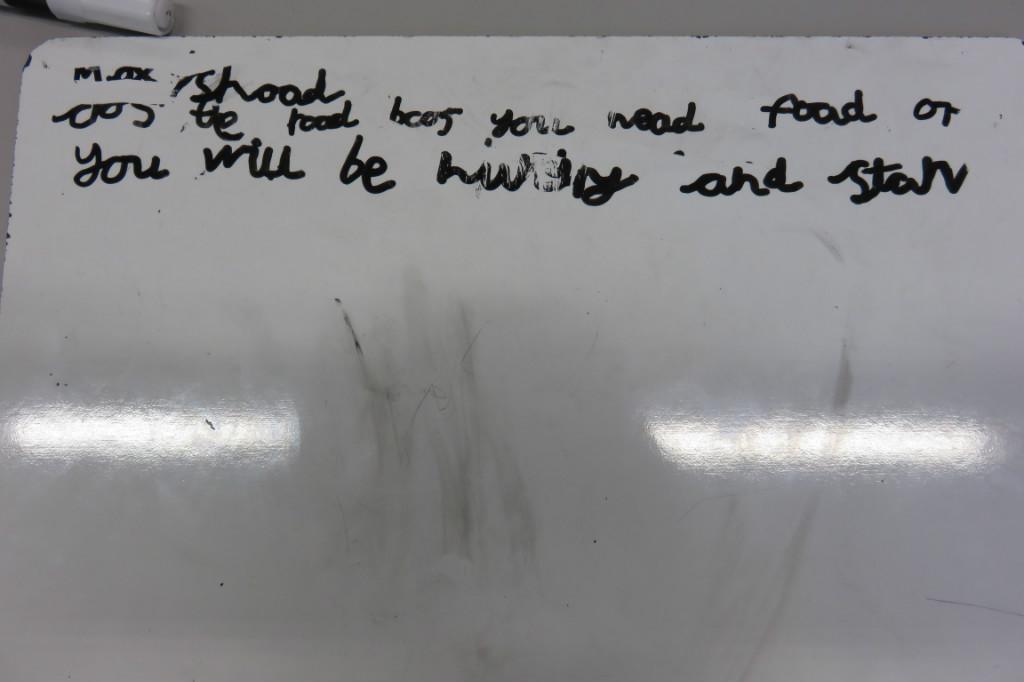 Max shood
oos the food boos you nead food or
you will be and starv